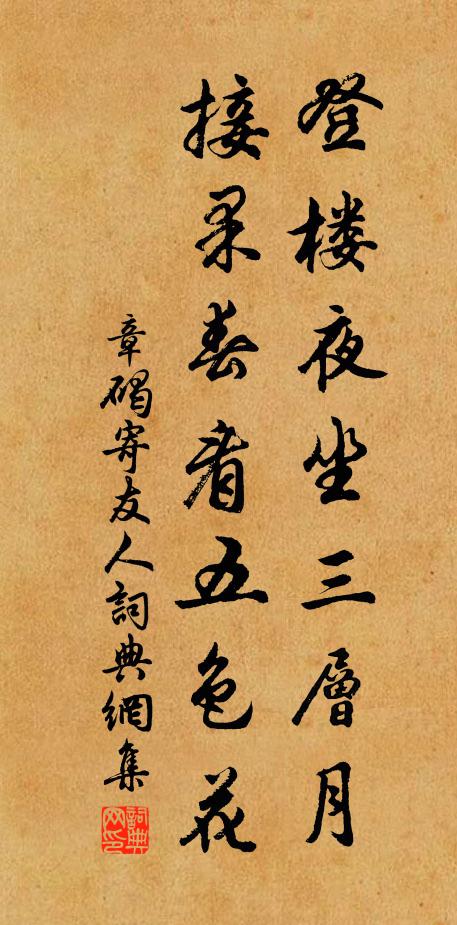 登楼夜坐三層月
接果春看五色花
章碣寄友人詞典網集
詞典网印